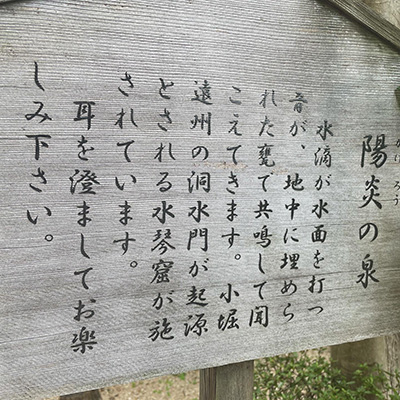 陽炎の泉
かげろう
水滴が水面を打つ
音が、地中に埋めら
れた甕で共鳴して聞
こえてきます。小堀
遠州の洞水門が起源
とされる水琴窟が施
されています。
耳を澄ましてお楽
しみ下さい。